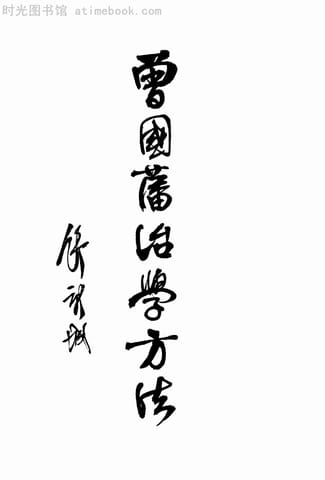 时光图书馆 atimebook.com
曾國藩治學方法
舒新城